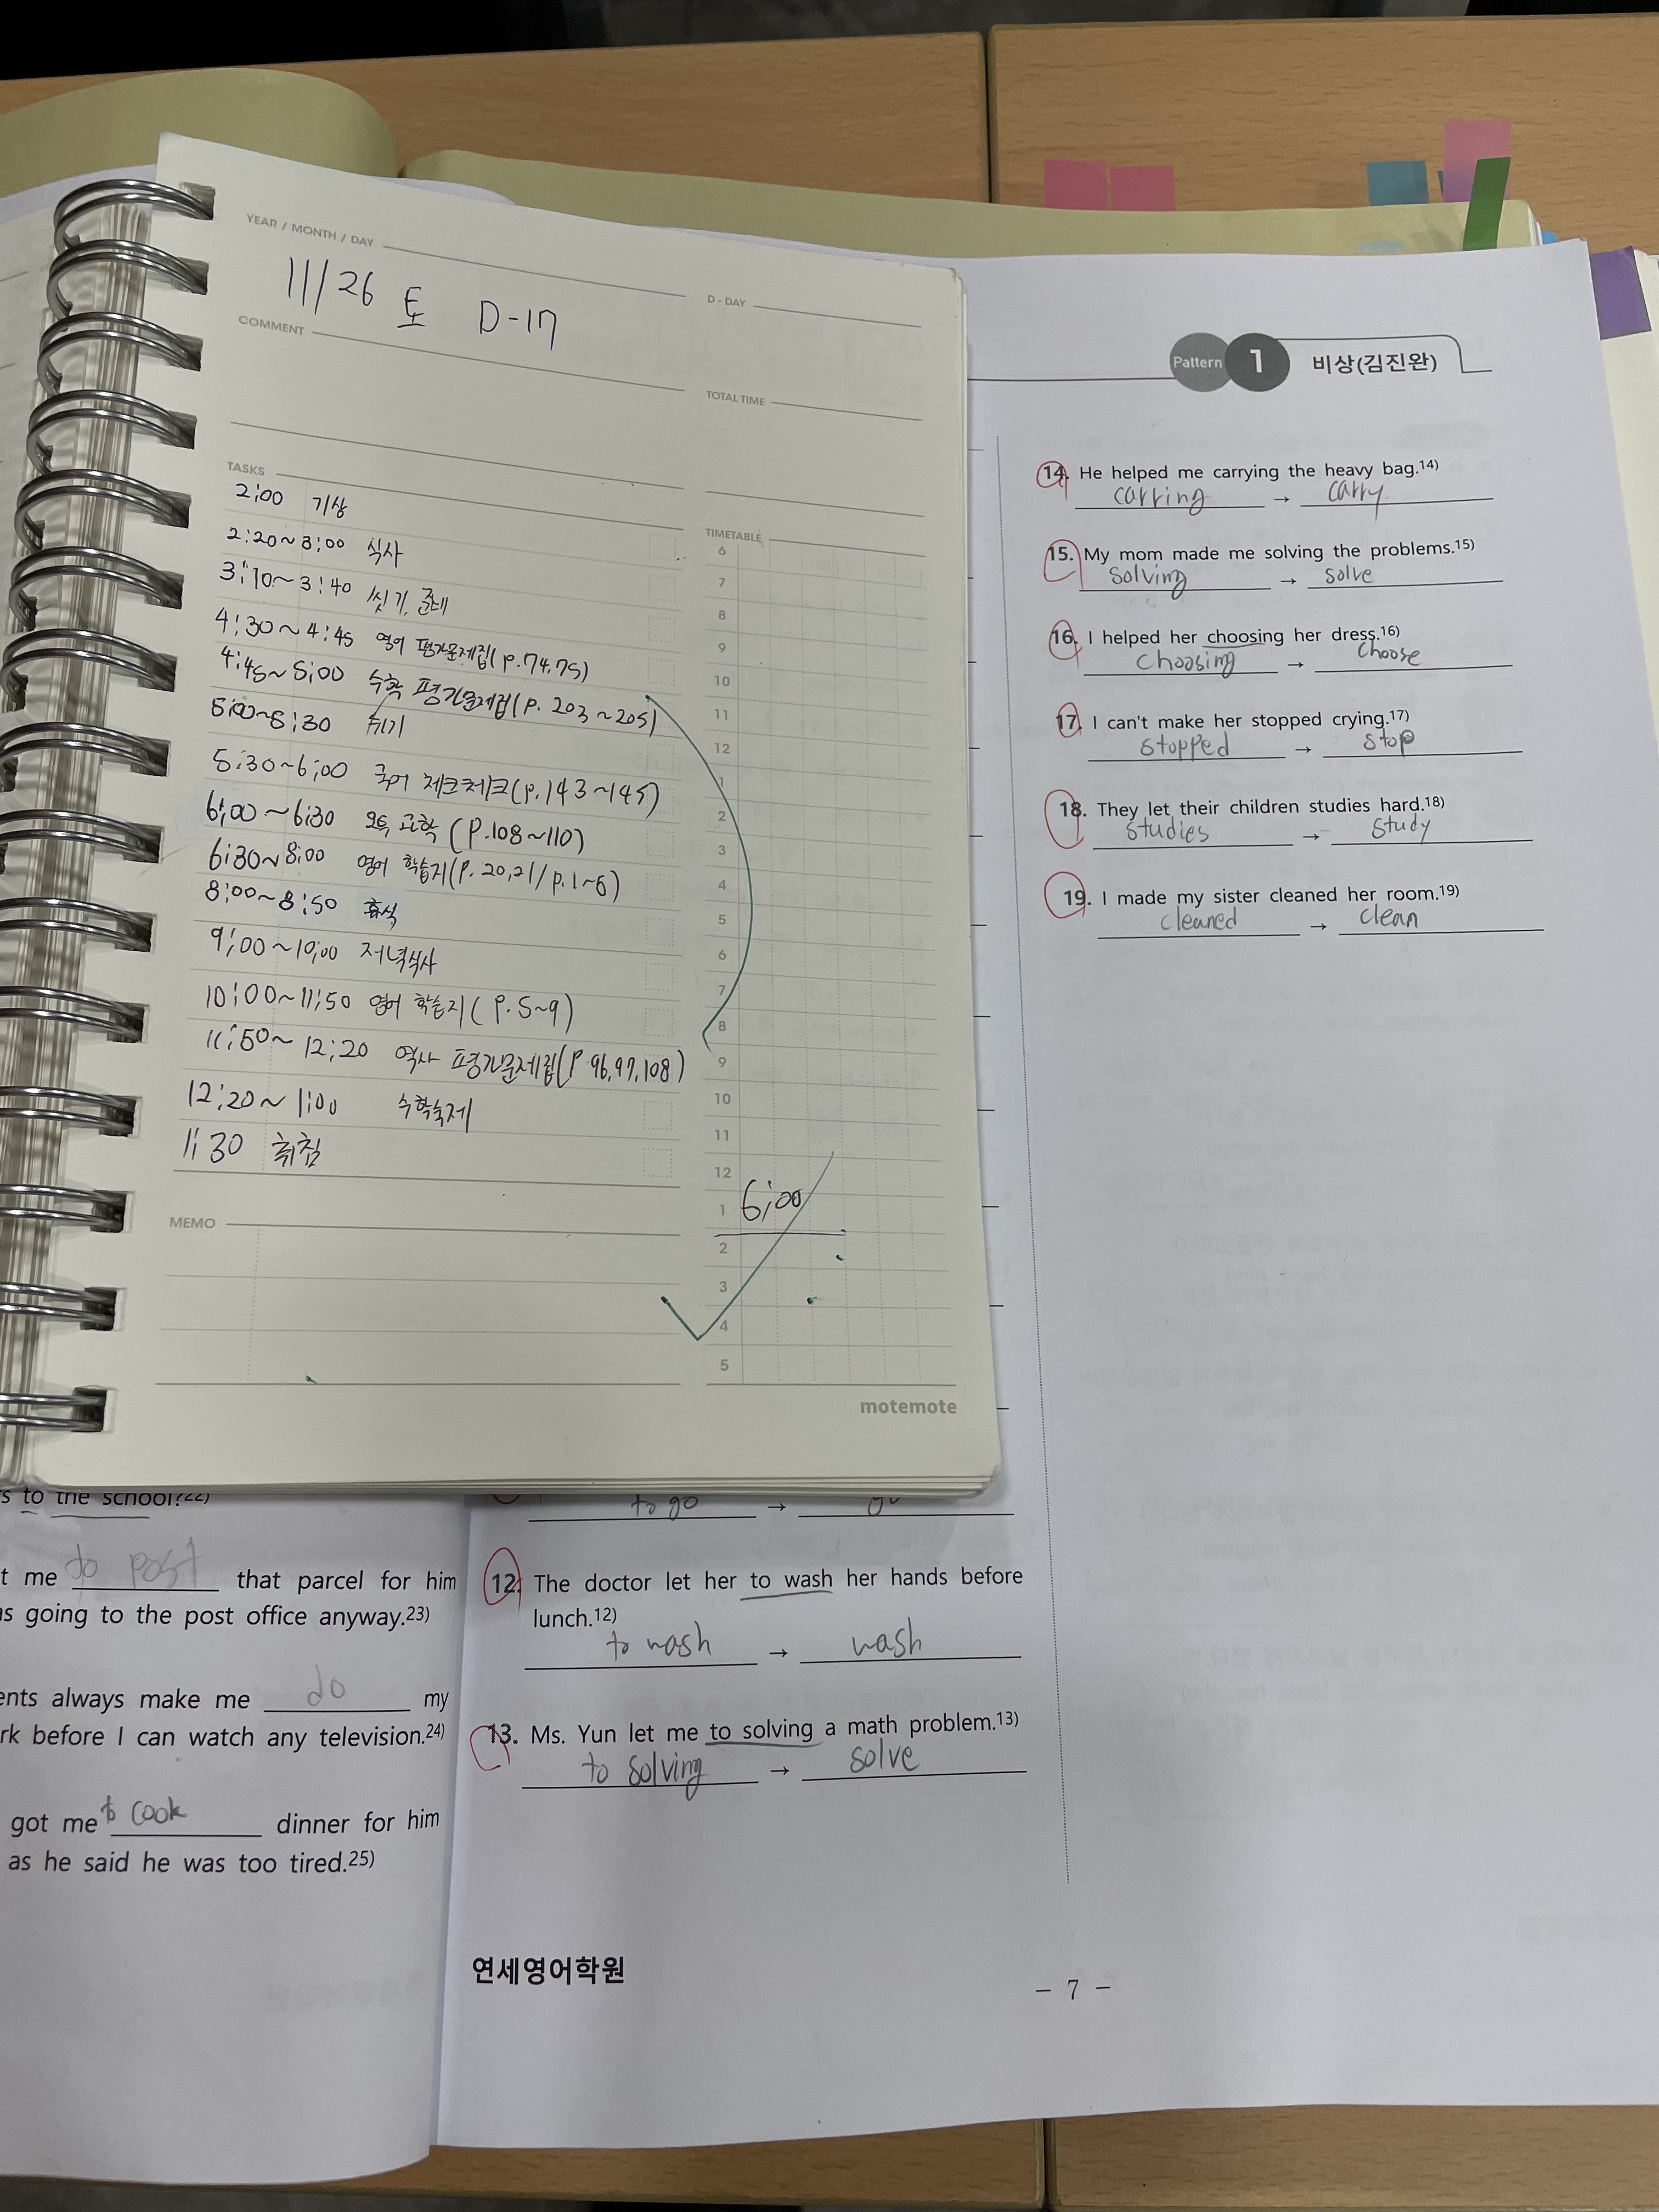 YEAR / MONTH / DAY
11/26 토 D-17
D-DAY
COMMENT
TOTAL TIME
TASKS
2:00 기상
2:20~3:00 식사
3:10~3:40 씻기, 준비
4:30~4:45 영어 평가문제집(p.74,75)
4:45~5:00 수학 평가문제집(p. 203~205)
5:00~5:30 쉬기
5:30~6:00 국어 체크체크(p.143~145)
6:00~6:30 오투 과학 (p.108~110)
6:30~8:00 영어 학습지(p. 20,21/p.1~5)
8:00~8:50 휴식
9:00~10:00 저녁식사
10:00~11:50 영어 학습지( p.5~9)
11:50~12:20 역사 평가문제집(p.96,97,108)
12:20~1:00 수학숙제
1:30 취침
TIMETABLE
6
7
8
9
10
11
12
1
2
3
4
5
6
7
8
9
10
11
12
1 6:00
2
3
4
5
MEMO
motemote
s to the school?22)
t me to post that parcel for him
as going to the post office anyway.23)
ents always make me do my
rk before I can watch any television.24)
got me to cook dinner for him
as he said he was too tired.25)
to go → go
12. The doctor let her to wash her hands before
lunch.12)
to wash → wash
13. Ms. Yun let me to solving a math problem.13)
to solving → solve
Pattern 1 비상(김진완)
14. He helped me carrying the heavy bag.14)
carring → carry
15. My mom made me solving the problems.15)
solving → solve
16. I helped her choosing her dress.16)
choosing → choose
17. I can't make her stopped crying.17)
stopped → stop
18. They let their children studies hard.18)
studies → study
19. I made my sister cleaned her room.19)
cleaned → clean
연세영어학원
- 7 -